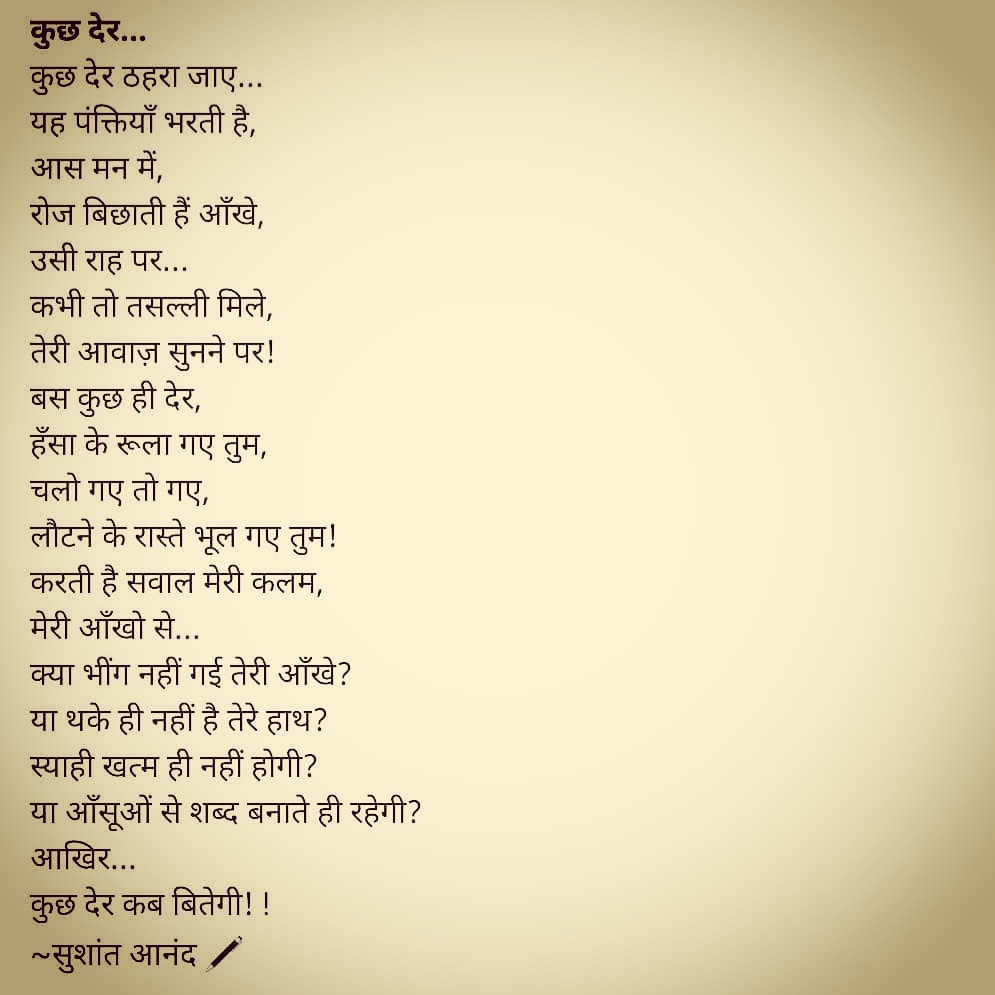 कुछ देर...
कुछ देर ठहरा जाए...
यह पंक्तियाँ भरती है,
आस मन में,
रोज बिछाती हैं आँखे,
उसी राह पर...
कभी तो तसल्ली मिले,
तेरी आवाज़ सुनने पर!
बस कुछ ही देर,
हँसा के रूला गए तुम,
चलो गए तो गए,
लौटने के रास्ते भूल गए तुम!
करती है सवाल मेरी कलम,
मेरी आँखो से...
क्या भींग नहीं गई तेरी आँखे?
या थके ही नहीं है तेरे हाथ?
स्याही खत्म ही नहीं होगी?
या आँसूओं से शब्द बनाते ही रहेगी?
आखिर...
कुछ देर कब बितेगी! !
~सुशांत आनंद 🖊